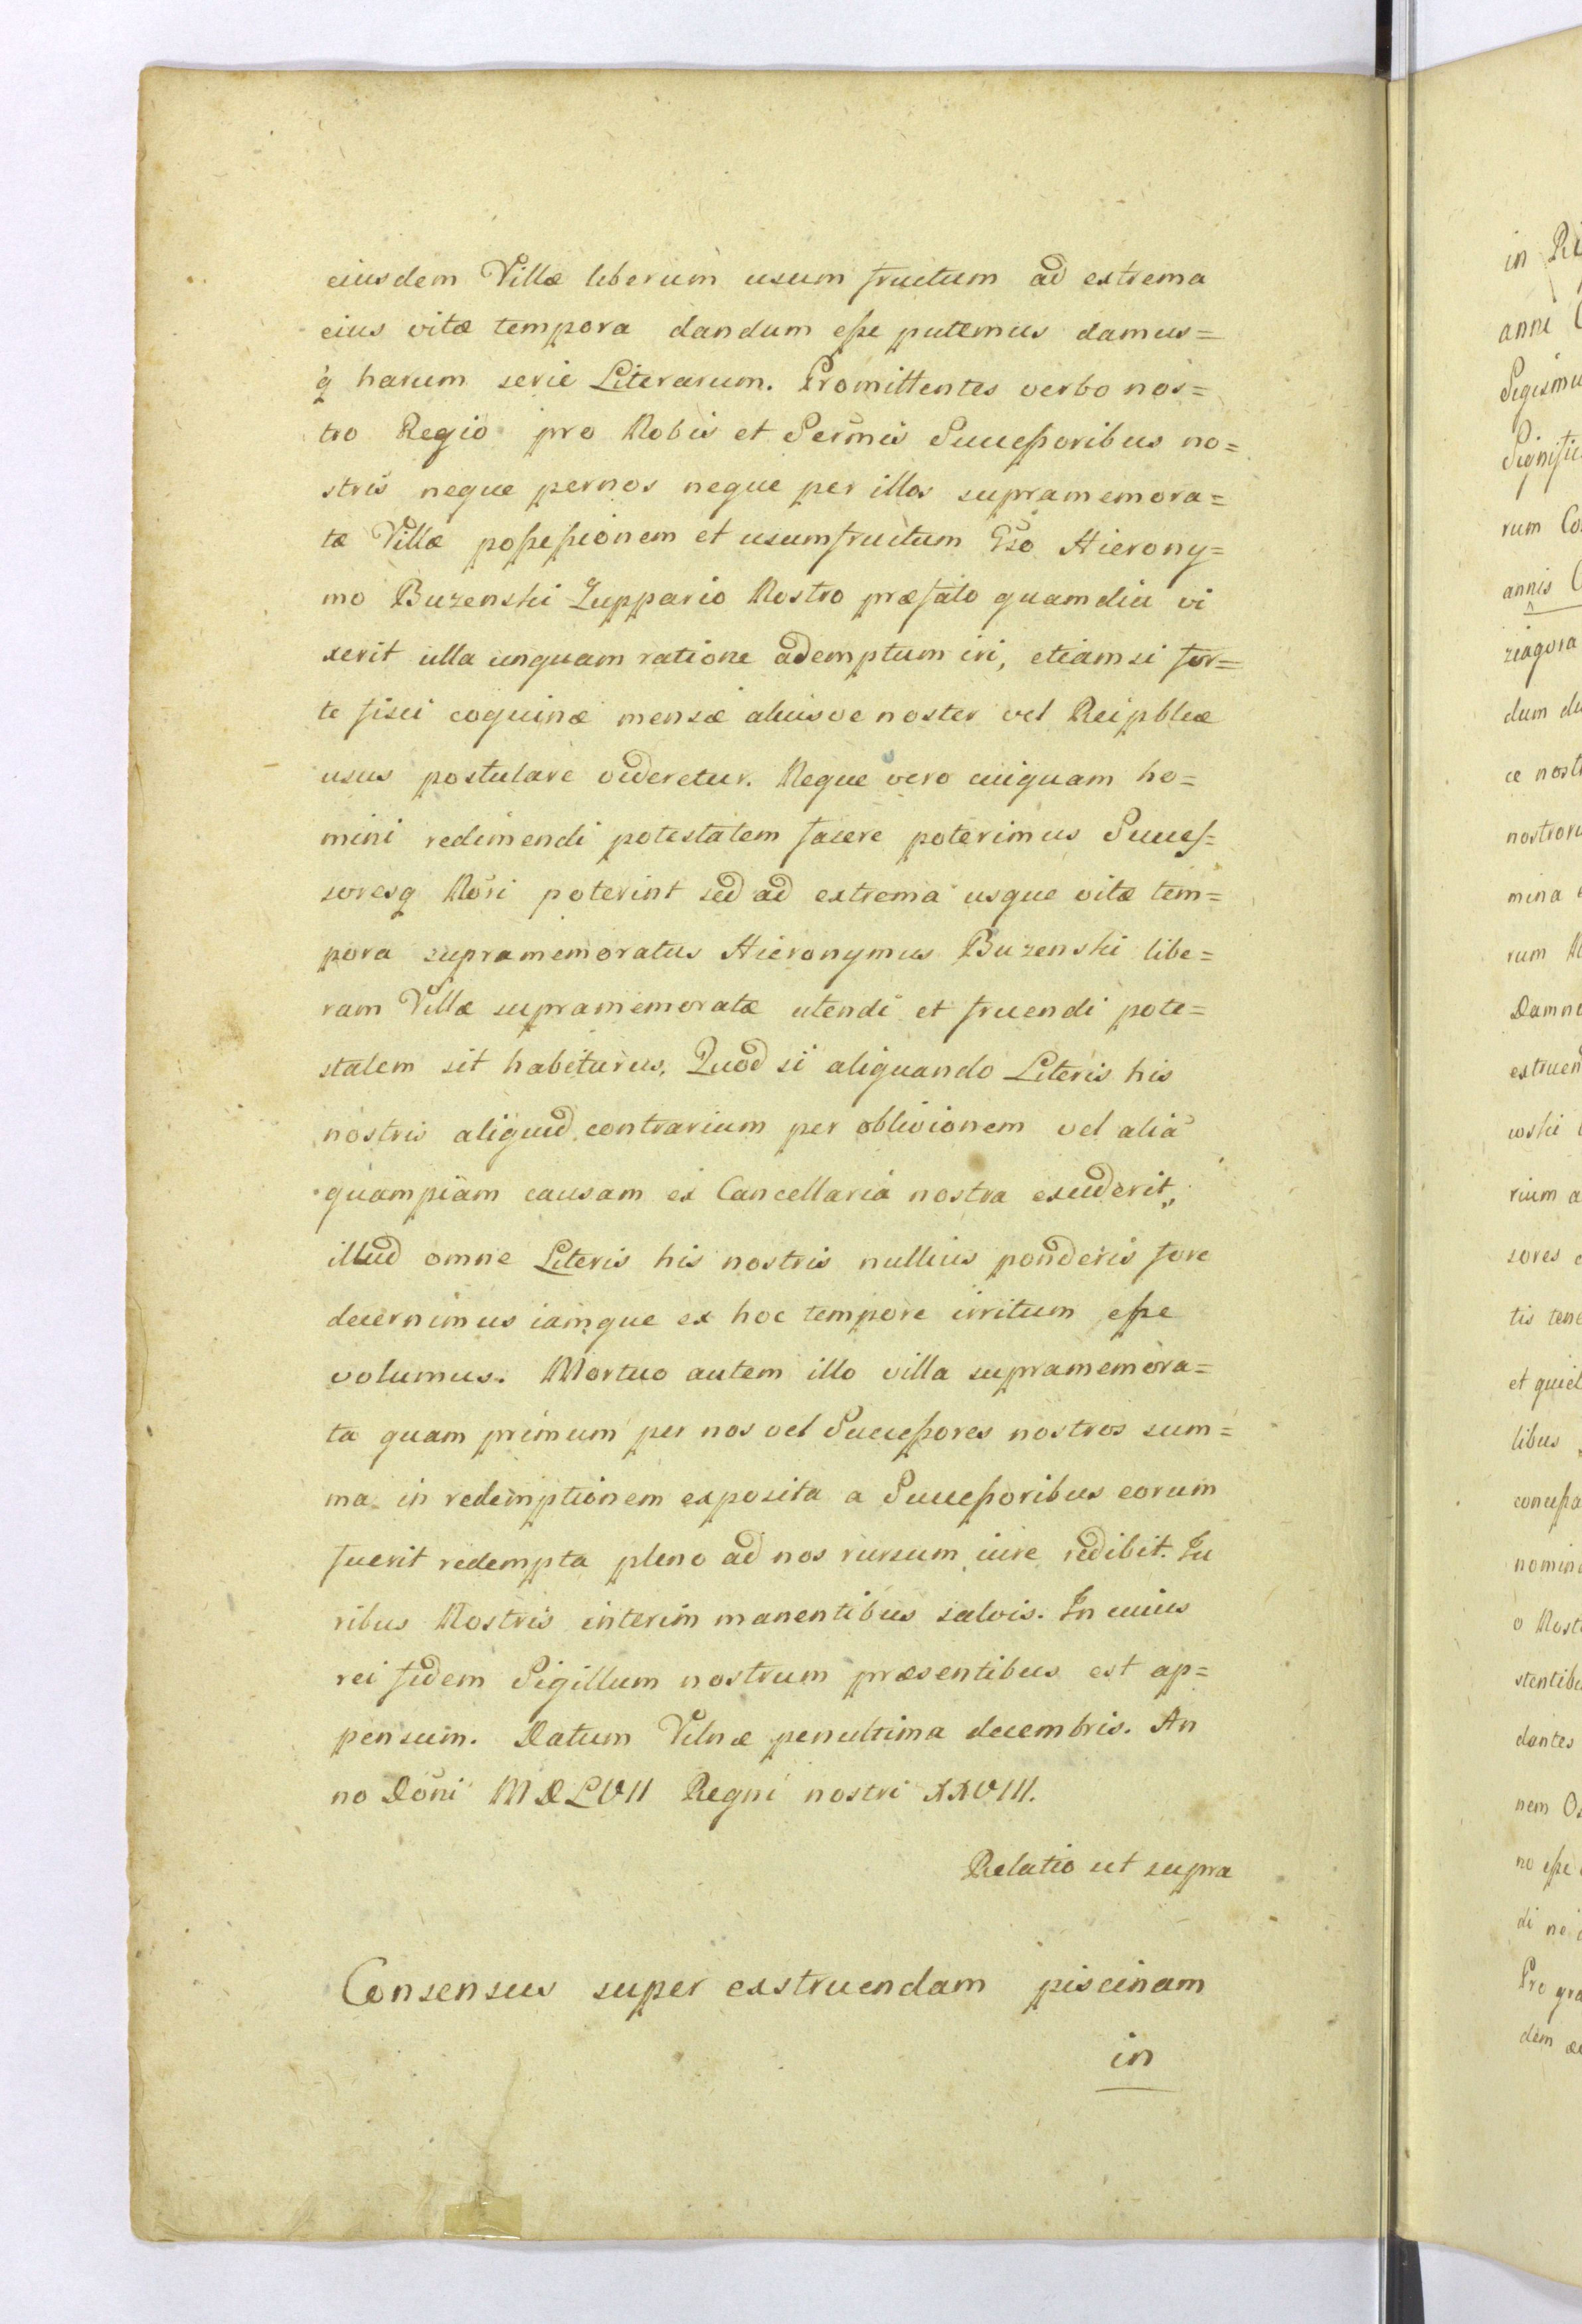 eiusdem Villæ liberum usum fructum ad extrema
eius vitæ tempora dandum eſse putemus damus=
q́ harum serie Literarum. Promittentes verbo nos=
tro Regio pro Nobis et Sermis Succeſsoribus no=
stris neque pernos neque per illos supramemora=
tæ Villæ poſseſsionem et usumfructum Gso Hierony=
mo Buzenski Zuppario Nostro præfato quamdiu vi
xerit ulla unquam ratione ademptum iri, etiamsi for=
te fisci coquinæ mensæ aliusve noster vel Reipblcæ
usus postulare videretur. Neque vero cuiquam ho=
mini redimendi potestatem facere poterimus Succeſ=
soresq Nŏri poterint sed ad extrema usque vitæ tem=
pora supramemoratus Hieronymus Buzenski libe=
ram Villæ supramemoratæ utendi et fruendi pote=
statem sit habiturus. Quod si aliquando Literis his
nostris aliquid contrarium per oblivionem vel alia
quampiam causam ex Cancellaria nostra exciderit,
illud omne Literis his nostris nullius ponderis fore
decernimus iamque ex hoc tempore irritum eſse
volumus. Mortuo autem illo villa supramemora=
ta quam primum per nos vel Succeſsores nostros sum=
ma in redemptionem exposita a Succeſsoribus eorum
fuerit redempta pleno ad nos rursum iure redibit. Iu
ribus Nostris interim manentibus salvis. In cuius
rei fidem Sigillum nostrum præsentibus est ap=
pensum. Datum Vilnæ penultima decembris. An
no Dŏni MDLVII Regni nostri XXVIII.
Relatio ut supra
Consensus super exstruendam piscinam
in
in
anni
rum
annis
ziagora
dum
ce
mina
rum
rium a
sores
et
libus
dantes
nem
no eſse
di
Pro
dem